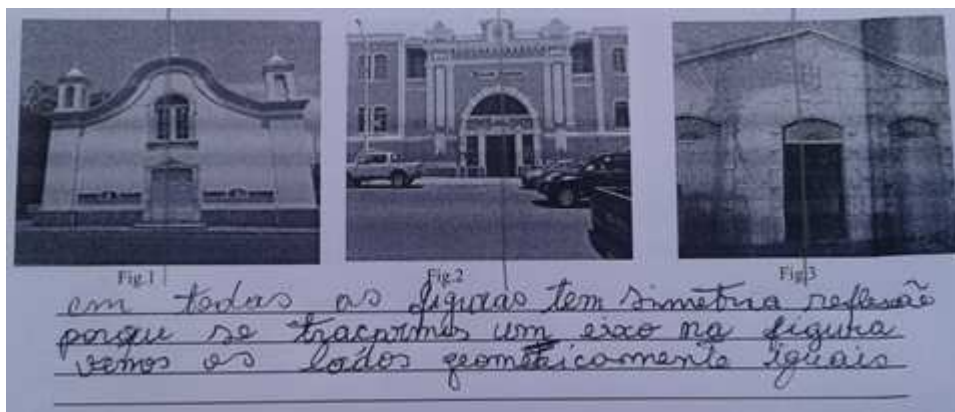 Fig.1
Fig.2
Fig.3
em todas as figuras tem simetria reflexão
porque se traçarmos um eixo na figura
vemos os lados geometricamente iguais